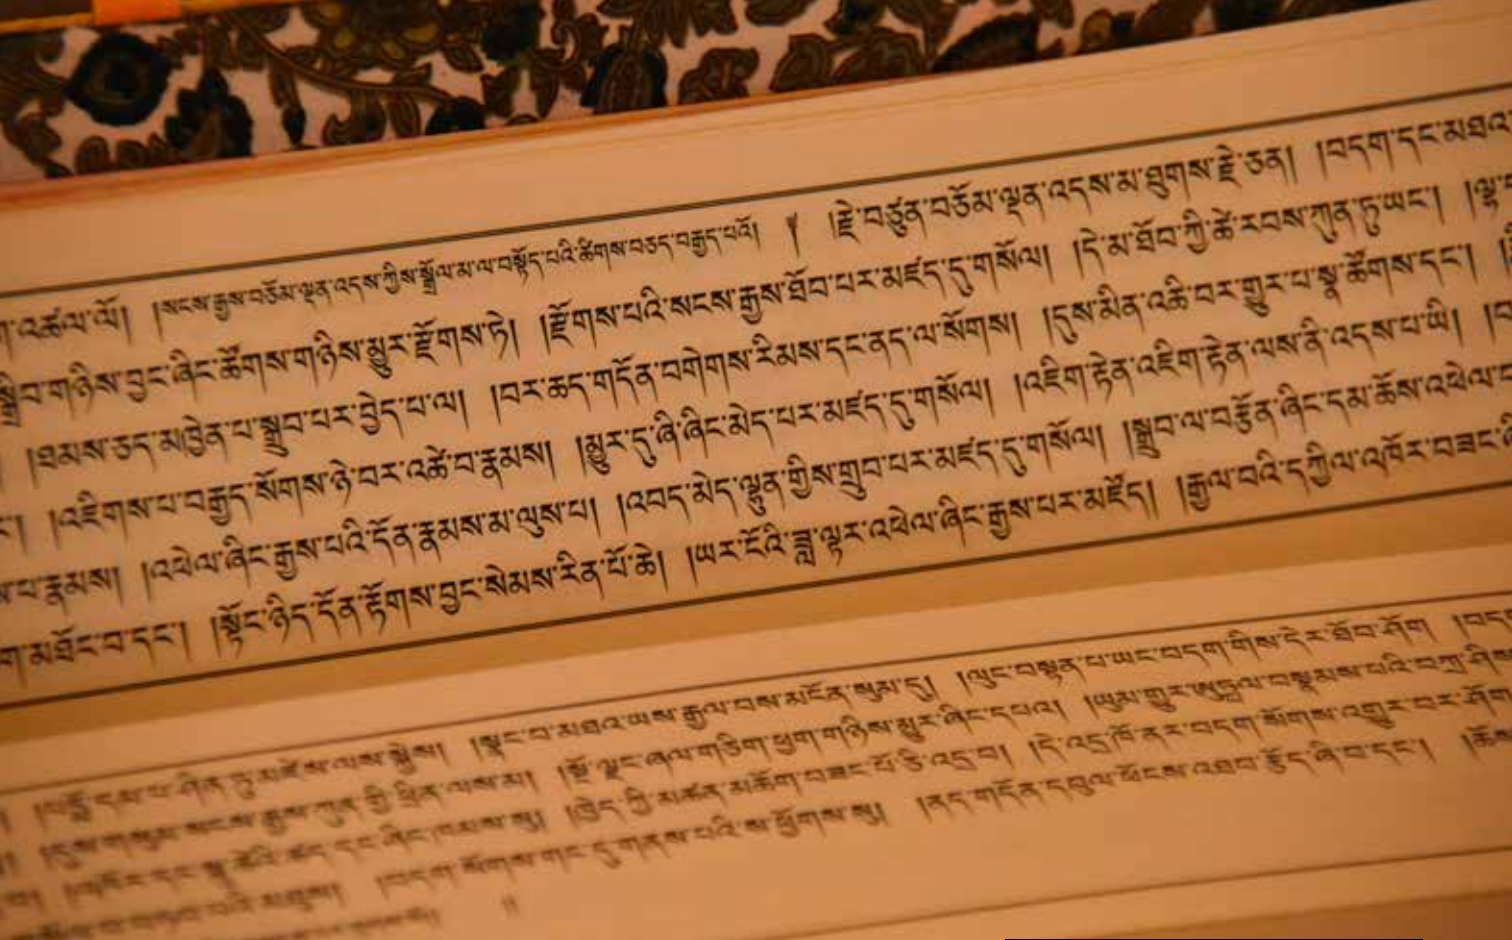 ག་འཚལ་ལོ། །སངས་རྒྱས་བཅོམ་ལྡན་འདས་ཀྱིས་སྒྲོལ་མ་ལ་བསྟོད་པའི་ཚིགས་བཅད་བརྒྱད་པའོ། ། །རྗེ་བཙུན་བཅོམ་ལྡན་འདས་མ་ཐུགས་རྗེ་ཅན། །བདག་དང་མཐའ་
སྒྲིབ་གཉིས་བྱང་ཞིང་ཚོགས་གཉིས་མྱུར་རྫོགས་ཏེ། །རྫོགས་པའི་སངས་རྒྱས་ཐོབ་པར་མཛད་དུ་གསོལ། །དེ་མ་ཐོབ་ཀྱི་ཚེ་རབས་ཀུན་ཏུ་ཡང་། །ལྷ་
།ཐམས་ཅད་མཁྱེན་པ་སྒྲུབ་པར་བྱེད་པ་ལ། །བར་ཆད་གདོན་བགེགས་རིམས་དང་ནད་ལ་སོགས། །དུས་མིན་འཆི་བར་གྱུར་པ་སྣ་ཚོགས་དང་།
ང་། །འཇིགས་པ་བརྒྱད་སོགས་ཉེ་བར་འཚེ་བ་རྣམས། །མྱུར་དུ་ཞི་ཞིང་མེད་པར་མཛད་དུ་གསོལ། །འཇིག་རྟེན་འཇིག་རྟེན་ལས་ནི་འདས་པ་ཡི།
པ་རྣམས། །འཕེལ་ཞིང་རྒྱས་པའི་དོན་རྣམས་མ་ལུས་པ། །འབད་མེད་ལྷུན་གྱིས་གྲུབ་པར་མཛད་དུ་གསོལ། །སྒྲུབ་ལ་བརྩོན་ཞིང་དམ་ཆོས་འཕེལ་བ་
ག་མཐོང་བ་དང་། །སྟོང་ཉིད་དོན་རྟོགས་བྱང་སེམས་རིན་པོ་ཆེ། །ཡར་ངོའི་ཟླ་ལྟར་འཕེལ་ཞིང་རྒྱས་པར་མཛོད། །རྒྱལ་བའི་དཀྱིལ་འཁོར་བཟང་ཞི
།པདྨོ་དམ་པ་ཤིན་ཏུ་མཛེས་ལས་སྐྱེས། །སྣང་བ་མཐའ་ཡས་རྒྱལ་བས་མངོན་སུམ་དུ། །ལུང་བསྟན་པ་ཡང་བདག་གིས་དེར་ཐོབ་ཤོག །བད
།དུས་གསུམ་སངས་རྒྱས་ཀུན་གྱི་ཕྲིན་ལས་མ། །སྔོ་ལྗང་ཞལ་གཅིག་ཕྱག་གཉིས་མྱུར་ཞིང་དཔའ། །ཡུམ་གྱུར་ཨུཏྤལ་བསྣམས་པའི་བཀྲ་ཤིས
།འཁོར་དང་སྐུ་ཚེའི་ཚད་དང་ཞིང་ཁམས་སུ། །ཁྱེད་ཀྱི་མཚན་མཆོག་བཟང་པོ་ཅི་འདྲ་བ། །དེ་འདྲ་ཁོ་ནར་བདག་སོགས་འགྱུར་བར་ཤོག
།བདག་སོགས་གང་དུ་གནས་པའི་ས་ཕྱོགས་སུ། །ནད་གདོན་དབུལ་ཕོངས་འཐབ་རྩོད་ཞི་བ་དང་། །ཆོས